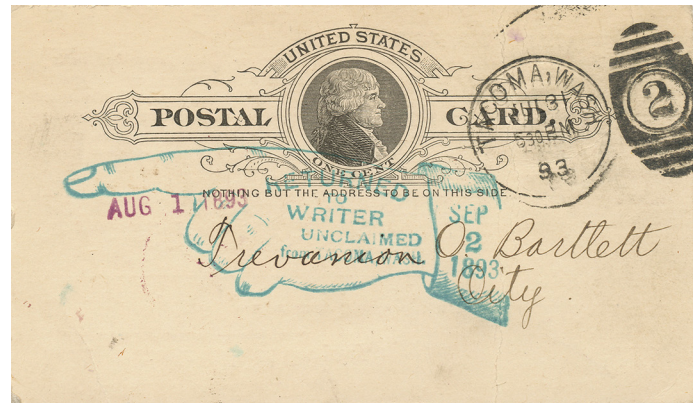 UNITED STATES
POSTAL CARD.
ONE CENT
NOTHING BUT THE ADDRESS TO BE ON THIS SIDE.
TACOMA, WASH.
JUL 31
630 PM
93
2
AUG 1 1893
RETURNED
TO
WRITER
UNCLAIMED
from TACOMA, WASH.
SEP
2
1893
Trevanion O. Bartlett
City